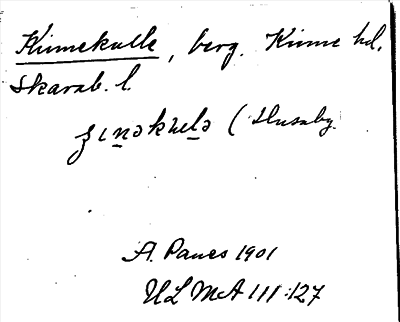 Kinnekulle, berg. Kinne hd.
Skarab. l.
ʒɩn̲əkɯl̲ə (Husaby.
A. Panes 1901
ULMA 111:127